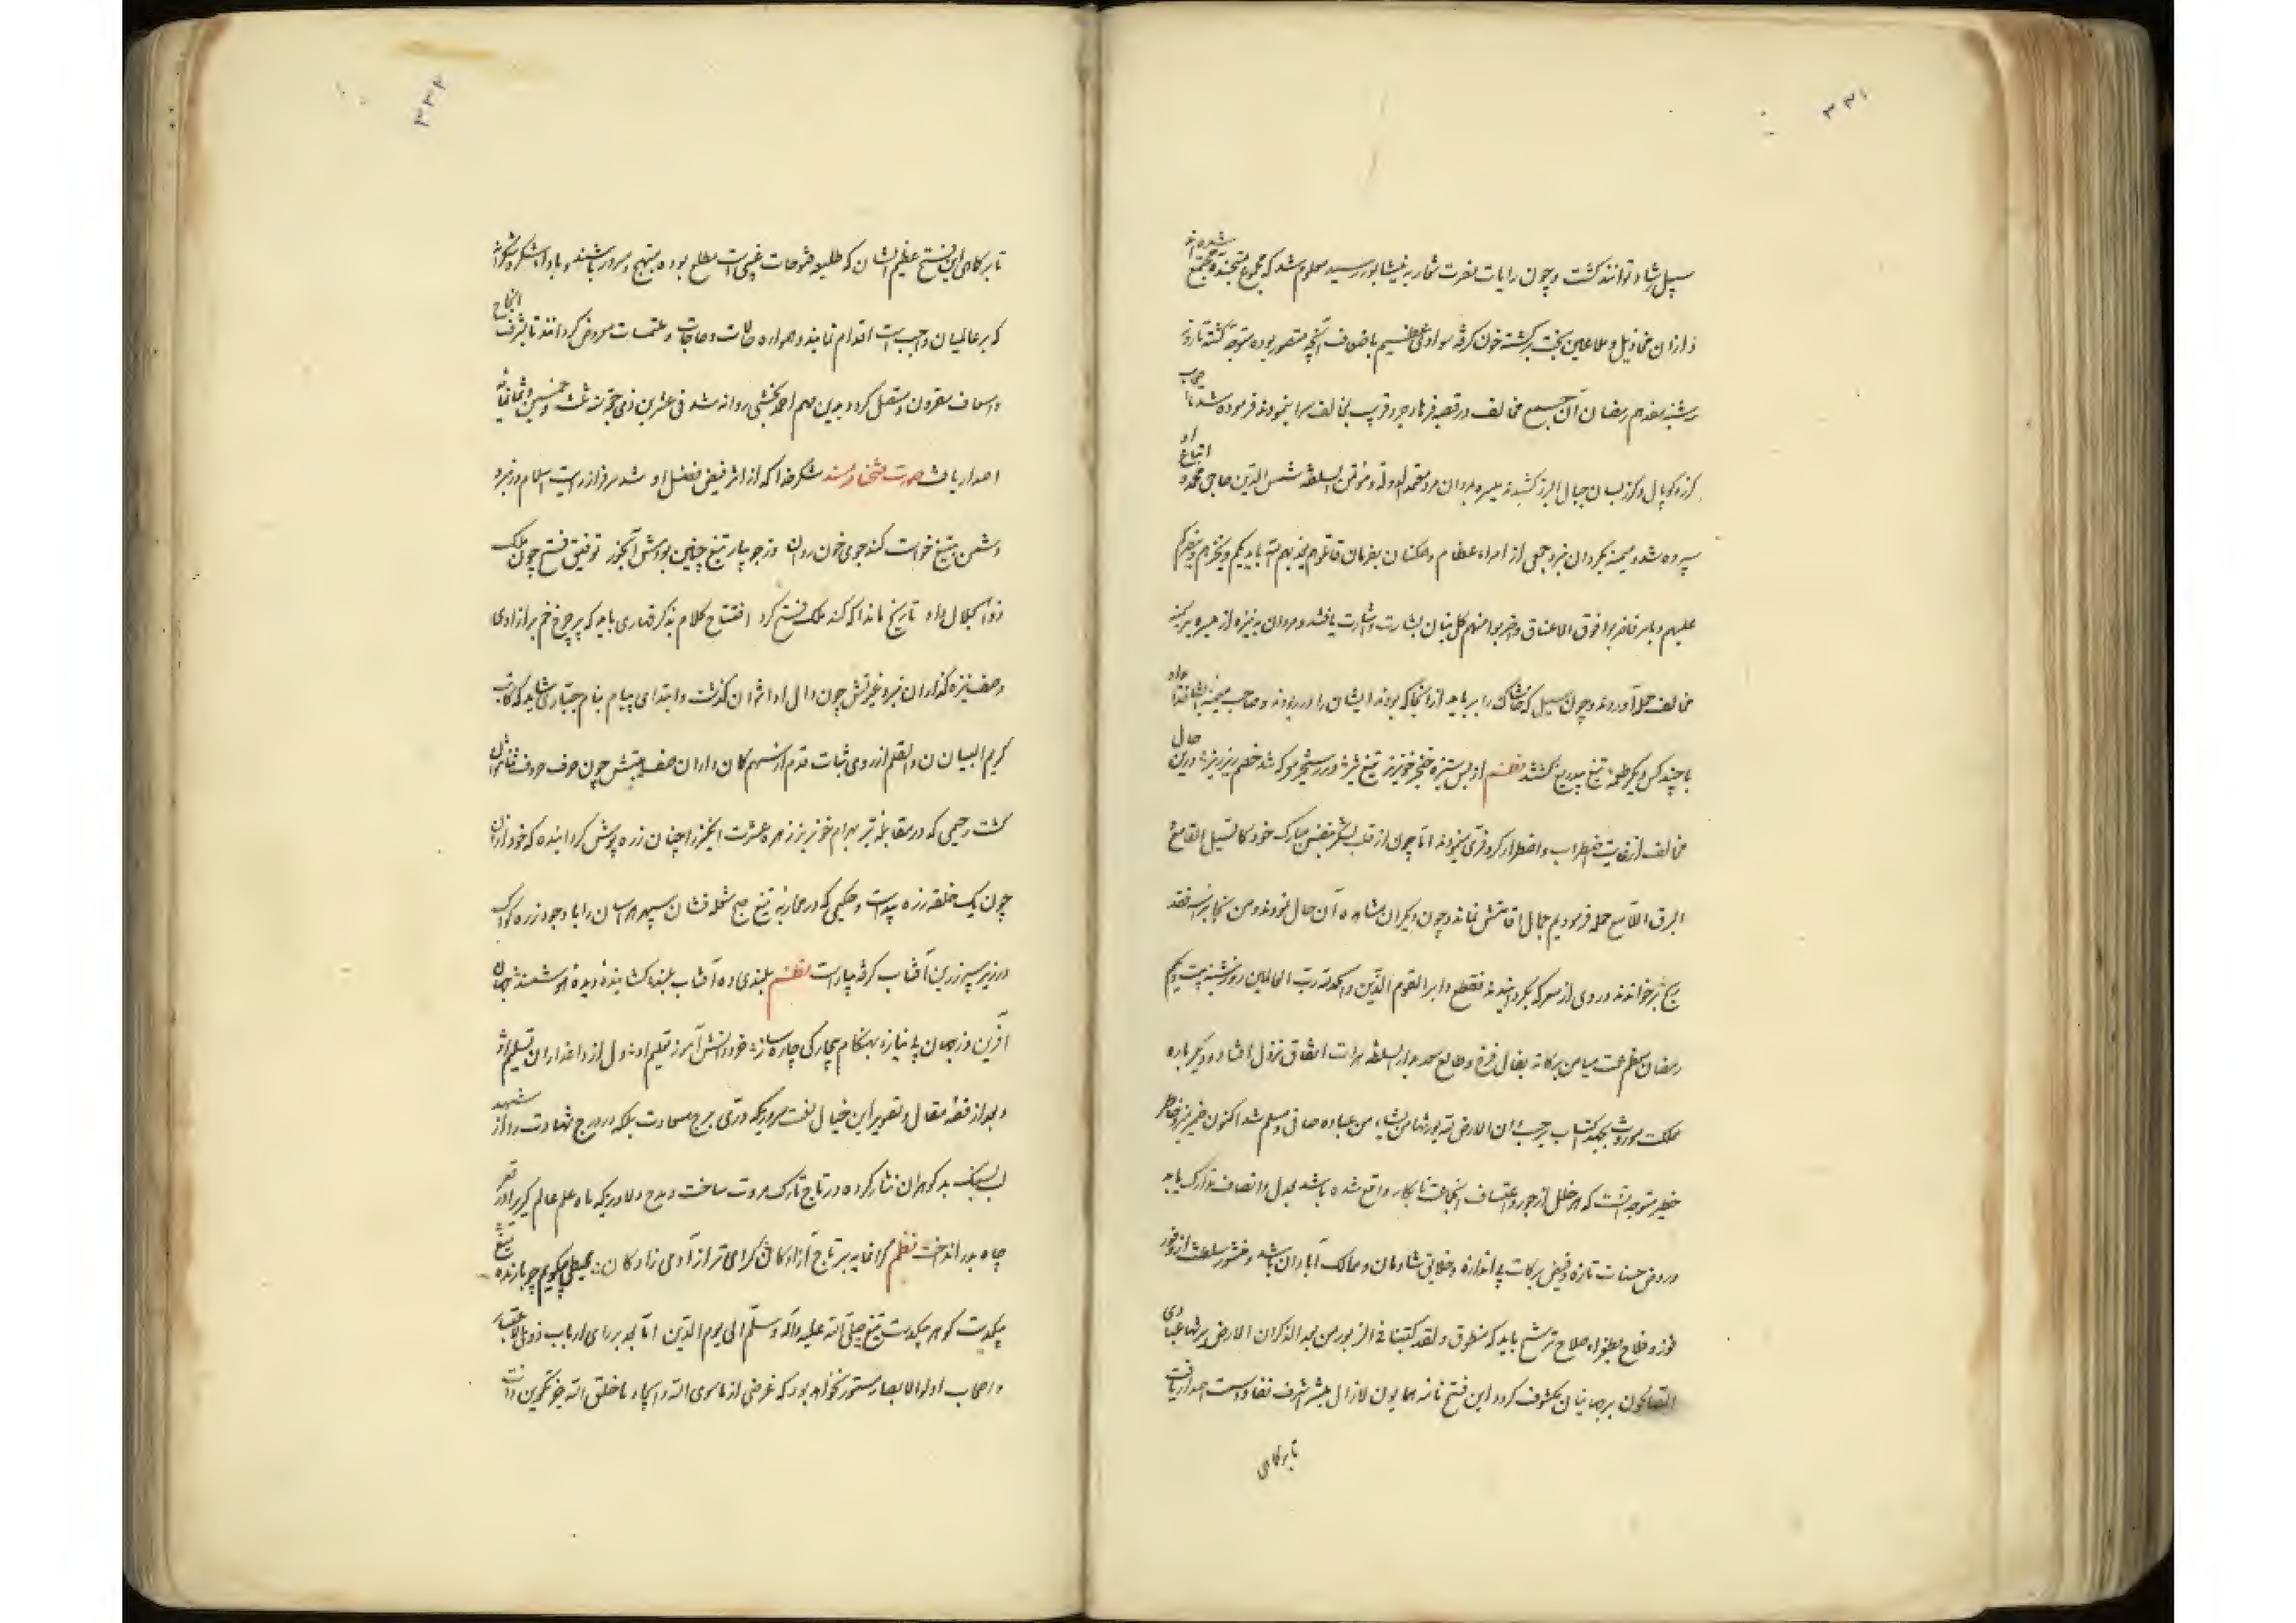 ۳۳۱
سیل ارشاد توانند کشت و چون رایات نصرت شعار به نیشابور رسید معلوم شد که مجموع متجنده و مجتمع شده اند
و ازان مخاذیل و ملاعین بخت برکشته خون کرفته سوادی عظیم باضعاف آنچه متصور بوده متوجه کشته تا روز
شنبه هفدهم رمضان آن جمیع مخالف در قصبه فرهارجرد قریب مخالف سرا نمودند فرموده شد تا
کرز و کوپال و کرز بسان جبال البرز کشیدند میسره بمردان مرد معتمد الدوله و مؤتمن السلطنه شمس الدین حاجی محمد و اتباع او
سپرده شد و میمنه بکردان نبرد جمعی از امراء عظام و همکنان بفرمان قاتلوهم یعذبهم الله بایدیکم و یخزهم و ینصرکم
علیهم و بامر فاضربوا فوق الاعناق واضربوا منهم کل بنان بشارت و اشارت یافتند و مردان به نیزه از میسره بر میمنه
مخالف حمله آوردند و چون سیل که خاشاک را برباید از آنجا که بودند ایشان را در ربودند و صاحب میمنه ایشان
با چند کس دیکر طعمه تیغ بیدریغ کشتند نظم از بس ستیزه خنجر خونریز تیغ تیز در رستخیز معرکه شد خصم ریز ریز درین حال
مخالف از غایت اضطراب و اضطرار کر و فری مینمودند اما چون از قلب لشکر بنفس مبارک خود کالسیل القامع
البرق اللامع حمله فرمودیم مجال اقامتش نماند و چون دیکران مشاهده آن حال نمودند و من نجا براسه فقد
ربح برخواندند و روی از معرکه بکردانیدند فقطع دابر القوم الذین والحمدلله رب العالمین روز شنبه بیست و یکم
رمضان معظم عمت میامن برکاته بفال فرخ و طالع سعد بدار السلطنه هرات اتفاق نزول افتاد و دیکر باره
مملکت موروث بحکم کتاب بموجب ان الارض لله یورثها من یشاء من عباده صافی و مسلم شد اکنون ضمیر منیر و خاطر
خطیر متوجه آنست که هر خلل از جور و اعتساف آن جماعت نابکار واقع شده باشد بعدل و انصاف تدارک یابد
و روض حسنات تازه و فیض برکات بی اندازه و خلایق شادمان و ممالک آبادان باشد و منشور سلطنت از وفور
فوز و فلاح بطغراء صلاح ترشح یابد که منطوق ولقد کتبنا فی الزبور من بعد الذکر ان الارض یرثها عبادی
الصالحون بر جهانیان مکشوف کردد این فتح نامه همایون لازال شرف نفاذ و سمت اصدار یافت
تا برکاهی
۳۳۲
تا برکاهی این فتح عظیم الشان که طلیعه فتوحات غیبی است مطلع بوده مبتهج و مسرور باشند و باداء شکر و شکرانه
که بر عالمیان واجب است اقدام نمایند و همواره حالات و حاجات و ملتمسات معروض کردانند تا بشرف انجاح
و اسعاف مقرون و متصل کردد بدین مهم احمد بخشی روانه شد فی عشرین ذی حجه سنه ثلث و خمسین و ثمانمائه
اصدار یافت صورت شکر خدا که از اثر فیض فضل او شد سرفراز رایت اسلام در نبرد
دشمن بتیغ خواست کند جوی خون روان در جویبار تیغ چنین بودش آبخور توفیق فتح چون ملک
ذوالجلال داد تاریخ ماند آکه کند ملک فتح کرد افتتاح کلام بذکر قهاری باید که چرخ خم برازادی
وصف نیزه کذاران نبرد غیرتش چون دال اوا از ان کذشت و ابتدای پیام بنام جباری شاید که کاتب
کریم البیان ن والقلم از روی ثبات قدم از سهم کمانداران صف هیبتش چون حرف حروف
کشت رحیمی که در مقابله تیر بهرام خونریز زهره عشرت انکیز را چنان زره پوش کردانیده که خود ازان
چون یک حلقه زره پیداست و حکیمی که در محاربه تیغ صبح شعله فشان سپهر هراسان را با وجود زره کواکب
در زیر سپر زرین آفتاب کرفته پیداست نظم بلندی ده آفتاب بلند کشاینده دیده هوشمند جهان
آفرین وز جهان بی نیاز بهنکام بیچارکی چاره ساز خرد دانش آموز تعلیم او دل از داغداران تسلیم او
و بعد از فقه مقال و تصویر این خیال نعت سروریکه دری برج سعادت بلکه در درج شهادت را از شهد
لب بسنک بدکوهران نثار کرده در تاج تارک مروت ساخت و مدح دلاوریکه ماه علم عالم کیر او در قعر
چاه بدر انداخت نظم کرانمایه بر تاج آزادکان کرامی تر از آدمی زادکان محیطی چکویم چو بارنده میغ
بیکدست کوهر بیکدست تیغ صلی الله علیه وآله وسلم الی یوم الدین اما بعد بر رای ارباب ذوی الاعتبار
و اصحاب اولوالابصار مستور نخواهد بود که غرض از ماسوی الله و ایجاد ما خلق الله جز تکوین ذات